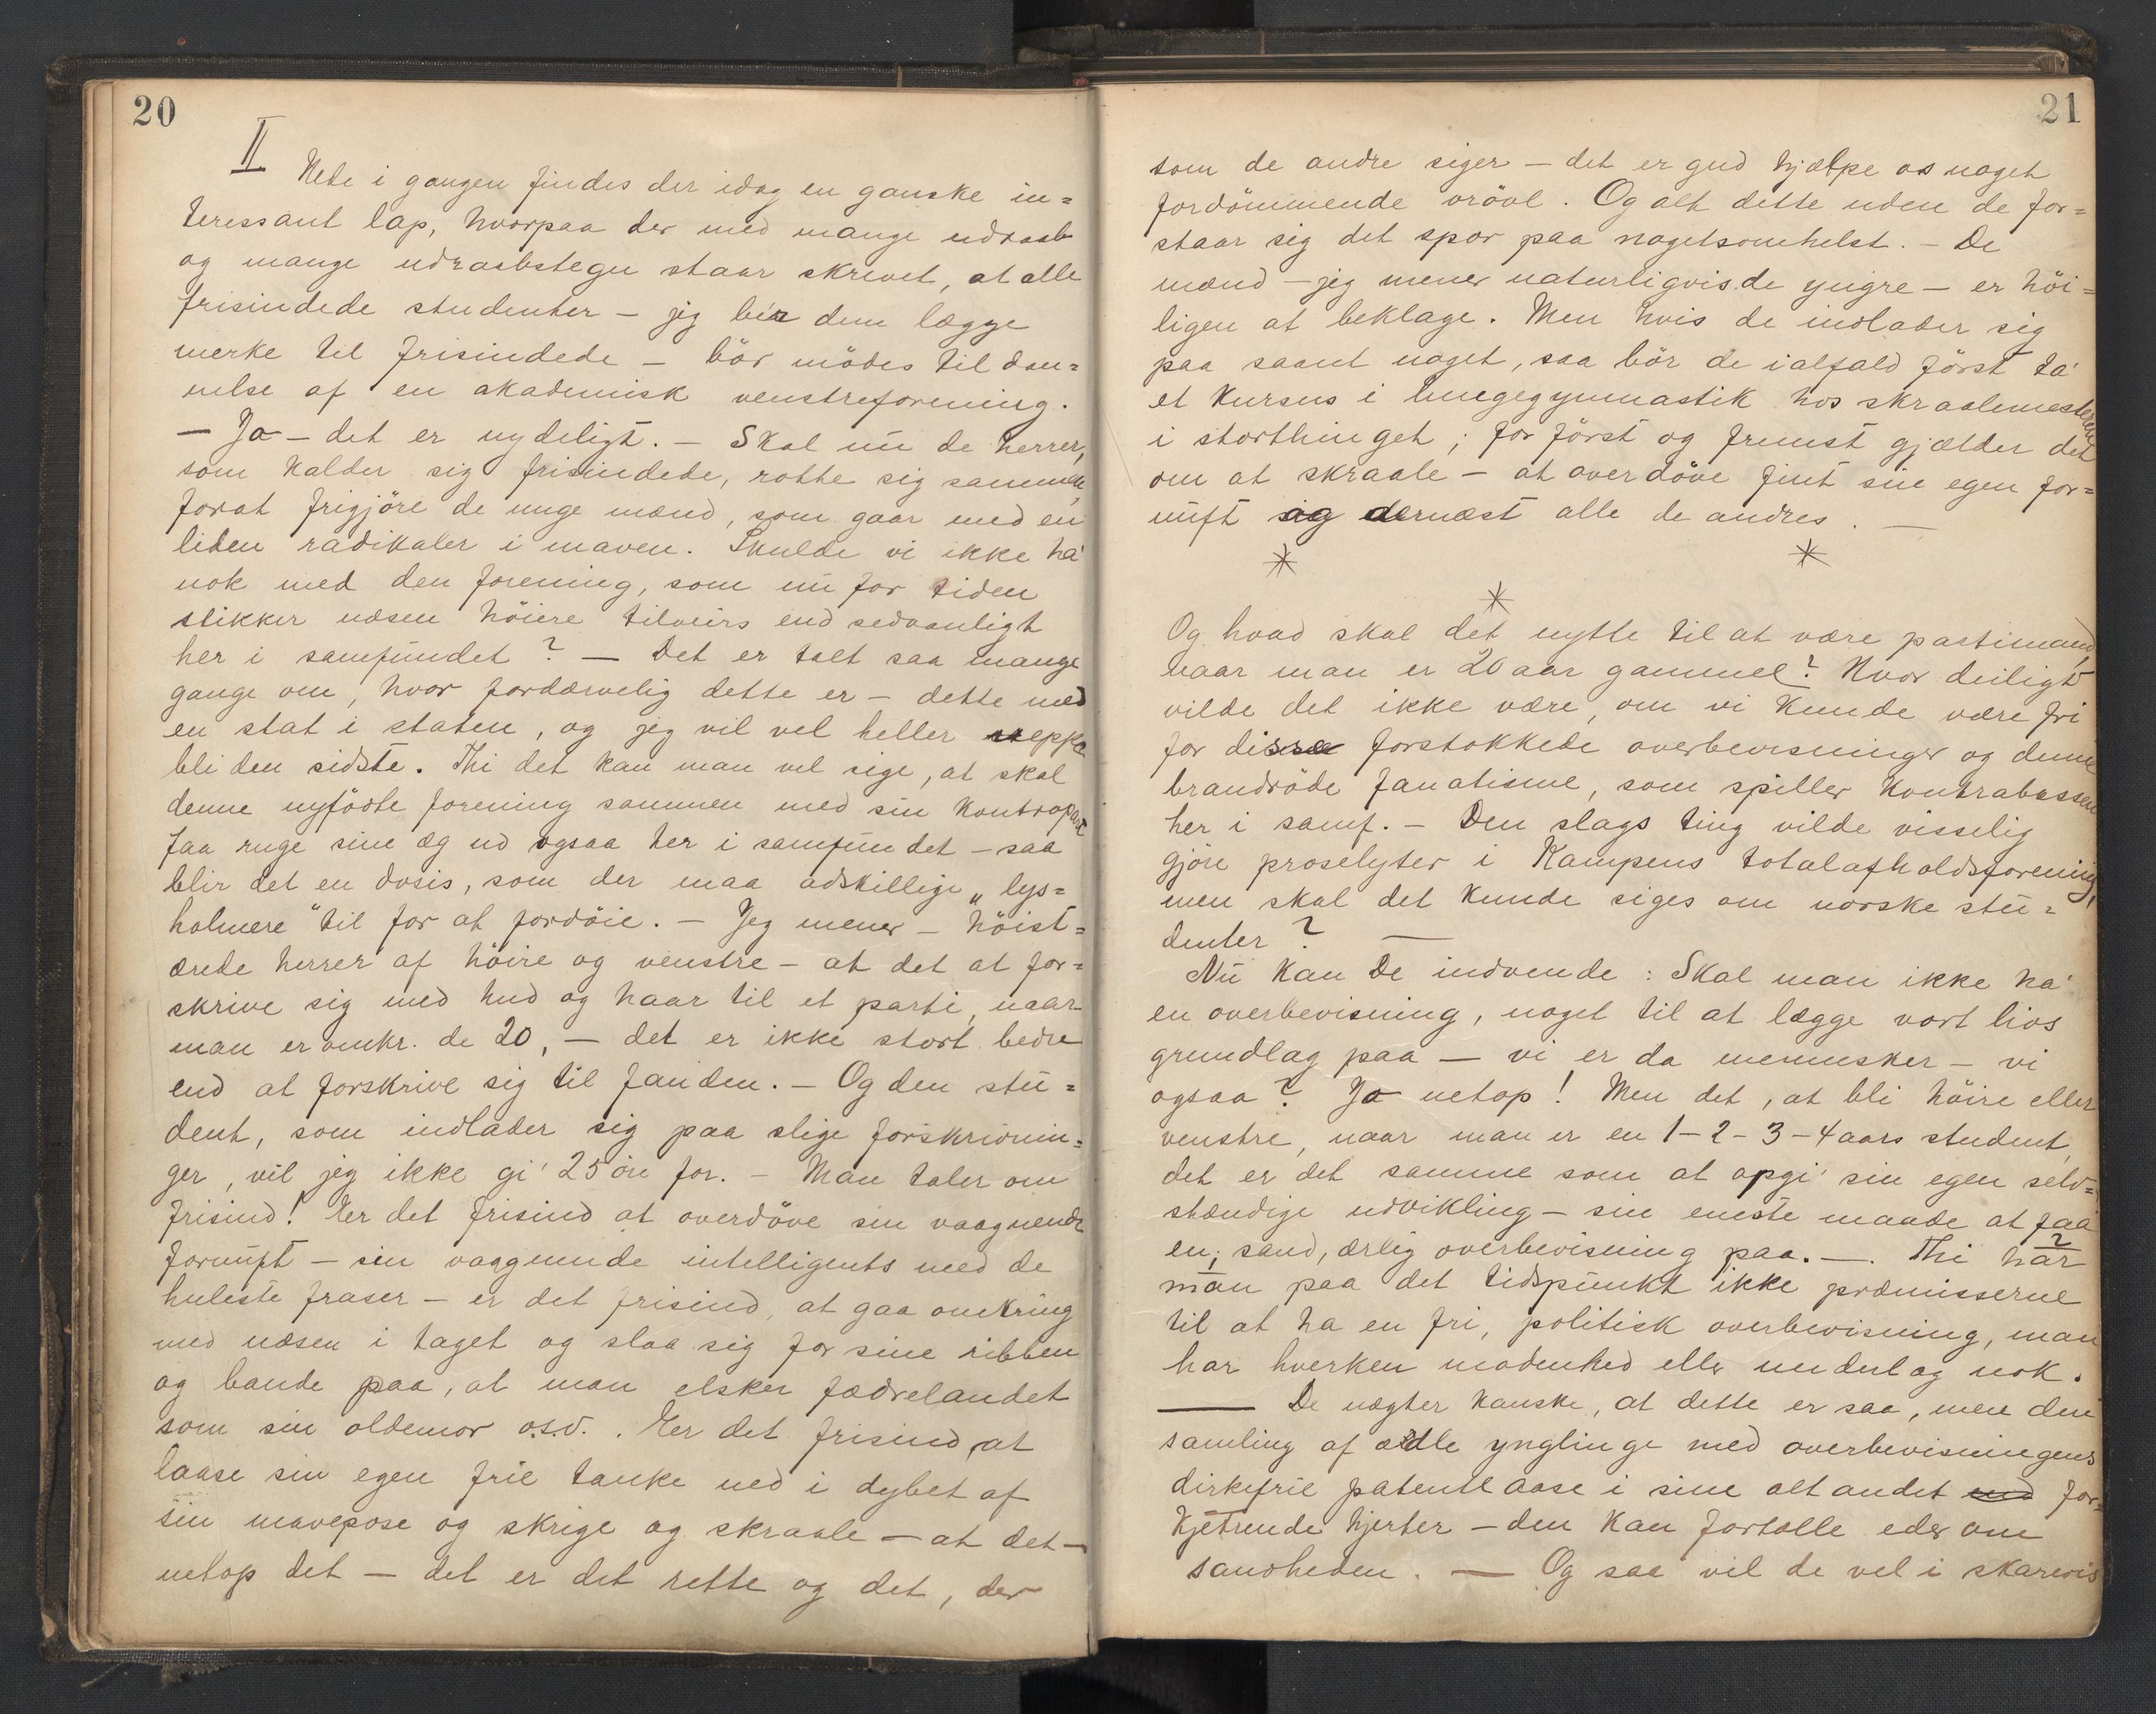 20
II
Nede i gangen findes der idag en ganske in=
teressant lap, hvorpaa der med mange udraab
og mange udraabstegn staar skrevet, at alle
frisindede studenter – jeg ber dem lægge
merke til frisindede – bör mödes til dan=
nelse af en akademisk venstreforening.
– Ja – det er nydeligt. – Skal nu de herrer,
som kalder sig frisindede, rotte sig sammen,
forat frigjöre de unge mænd, som gaar med en
liden radikaler i maven. Skulde vi ikke ha'
nok med den forening, som nu for tiden
stikker næsen höiere tilveirs end sedvanligt
her i samfundet? – Det er talt saa mange
gange om, hvor fordærvelig dette er – dette med
en stat i staten, og jeg vil vel heller neppe
bli den sidste. Thi det kan man vel sige, at skal
denne nyfödte forening sammen med sin kontrapart
faa ruge sine æg ud ogsaa her i samfundet – saa
blir det en dosis, som der maa adskillige „lys=
holmere" til for at fordöie. – Jeg mener – höist=
ærede herrer af höire og venstre – at det at for=
skrive sig med hud og haar til et parti, naar
man er omkr. de 20, – det er ikke stort bedre
end at forskrive sig til fanden. – Og den stu=
dent, som indlader sig paa slige forskrivnin=
ger, vil jeg ikke gi' 25 öre for. – Man taler om
frisind! Er det frisind at overdöve sin vaagnende
fornuft – sin vaagnende intelligents med de
huleste fraser – er det frisind, at gaa omkring
med næsen i taget og slaa sig for sine ribben
og bande paa, at man elsker fædrelandet
som sin oldemor o.s.v. . Er det frisind, at
laase sin egen frie tanke ned i dybet af
sin mavepose og skrige og skraale – at det –
netop det – det er det rette og det, der
21
som de andre siger – det er gud hjælpe os noget
fordömmende vrövl. Og alt dette uden de for=
staar sig det spor paa nogetsomhelst. – De
mænd – jeg mener naturligvis de yngre – er höi=
ligen at beklage. Men hvis de indlader sig
paa saant noget, saa bör de ialfald först ta'
et kursus i lungegymnastik hos skraalemesterne
i storthinget; for först og fremst gjælder det
om at skraale – at overdöve fint sin egen for=
nuft og dernæst alle de andres. –
* * *
Og hvad skal det nytte til at være partimand,
naar man er 20 aar gammel? Hvor deiligt
vilde det ikke være, om vi kunde være fri
for disse forstokkede overbevisninger og denne
brandröde fanatisme, som spiller kontrabassen
her i samf. – Den slags ting vilde visselig
gjöre proselyter i Kampens totalafholdsforening,
men skal det kunde siges om norske stu=
denter? –
Nu kan De indvende: Skal man ikke ha'
en overbevisning, noget til at lægge vort livs
grundlag paa – vi er da mennesker – vi
ogsaa? Ja netop! Men det, at bli höire eller
venstre, naar man er en 1-2-3-4 aars student,
det er det samme som at opgi' sin egen selv=
stændige udvikling – sin eneste maade at faa
en, sand, ærlig overbevisning paa. –. Thi har
man paa det tidspunkt ikke præmisserne
til at ha en fri, politisk overbevisning, man
har hverken modenhed eller underlag nok.
– De nægter kanske, at dette er saa, men den
samling af ædle ynglinge med overbevisningens
dirkefrie patentlaase i sine alt andet for=
kjetrende hjerter – den kan fortælle eder om
sandheden. – Og saa vil de vel i skarevis